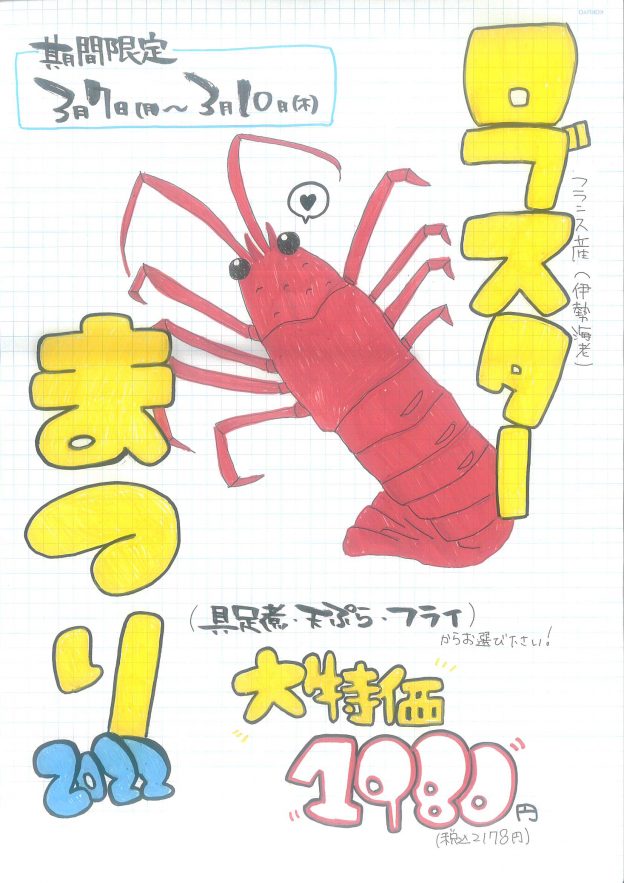 期間限定
3月7日(月)～3月10日(木)
ロブスター
フランス産(伊勢海老)
まつり
2022
(具足煮・天ぷら・フライ)
からお選び下さい!
大特価
1980円
(税込2178円)